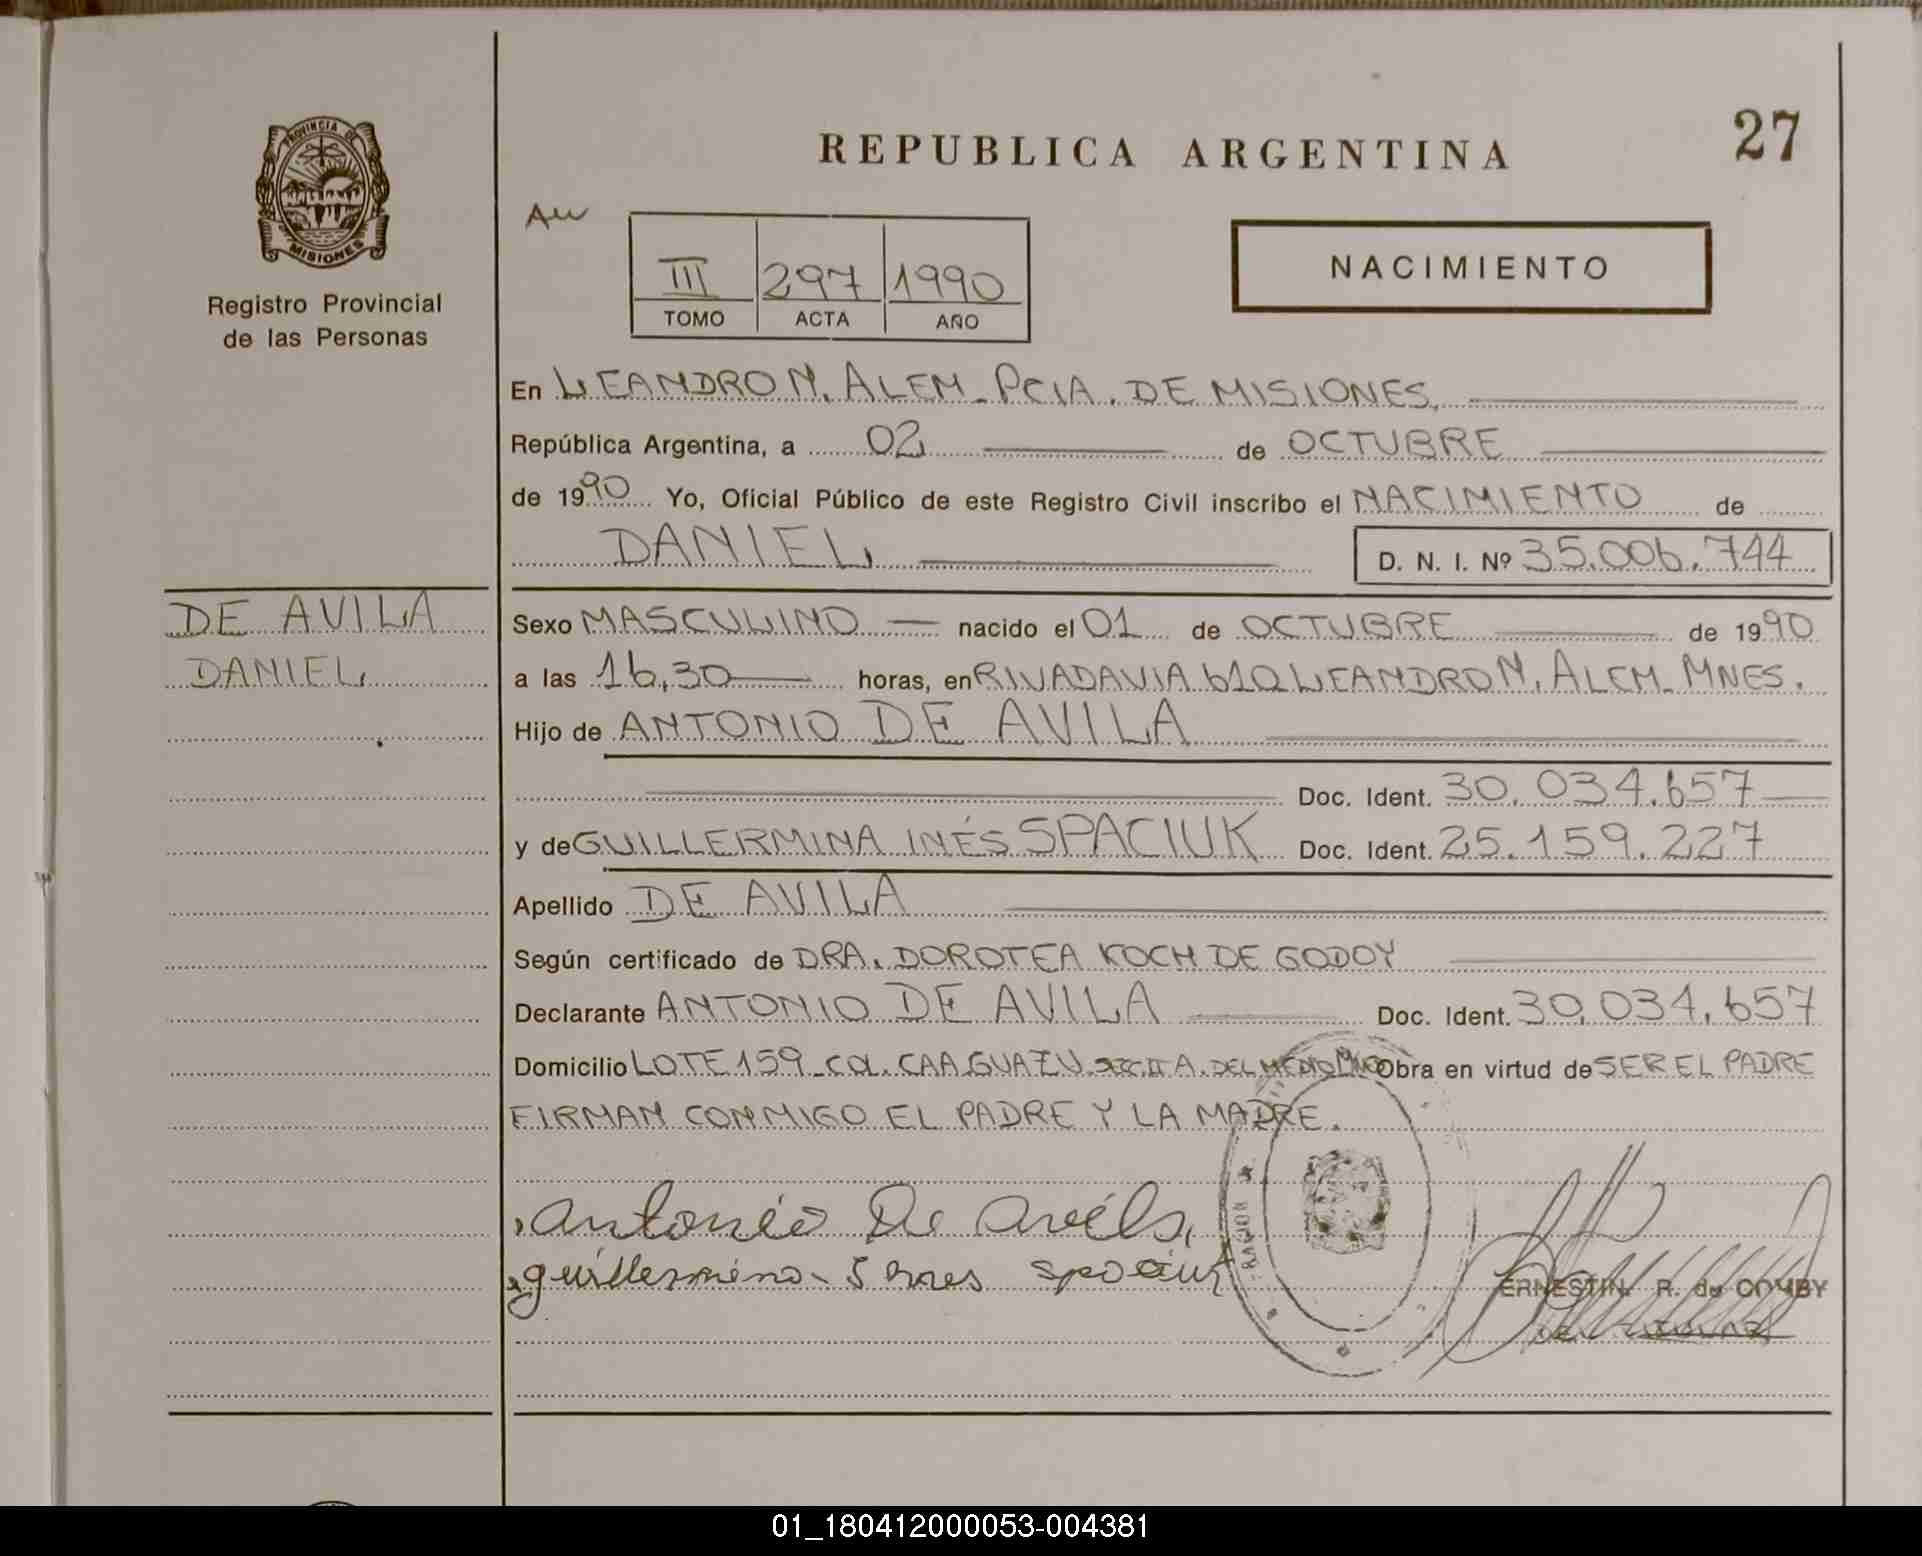 PROVINCIA DE
MISIONES
Registro Provincial
de las Personas
REPUBLICA ARGENTINA
27
III 297 1990
TOMO ACTA AÑO
NACIMIENTO
En LEANDRO N. ALEM - PCIA. DE MISIONES,
República Argentina, a 02 de OCTUBRE
de 1990 Yo, Oficial Público de este Registro Civil inscribo el NACIMIENTO de
DANIEL, D. N. I. Nº 35.006.744
DE AVILA
DANIEL,
Sexo MASCULINO nacido el 01 de OCTUBRE de 1990
a las 16,30 horas, en RIVADAVIA 610 LEANDRO N. ALEM - MNES.
Hijo de ANTONIO DE AVILA
Doc. Ident. 30.034.657
y de GUILLERMINA INÉS SPACIUK Doc. Ident. 25.159.227
Apellido DE AVILA
Según certificado de DRA. DOROTEA KOCH DE GODOY
Declarante ANTONIO DE AVILA Doc. Ident. 30.034.657
Domicilio LOTE 159 - COL. CAAGUAZU SECC. II A. DEL MEDIO Obra en virtud de SER EL PADRE
FIRMAN CONMIGO EL PADRE Y LA MADRE.
Antonio De Avila
guillermina Ines spaciuk
R. de COMBY
01_180412000053-004381